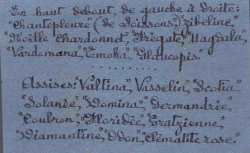 En haut debout, de gauche à droite:
"Chantepleure" (de Soissons), "Sibeline",
"Mireille Chardonnet", "Frégate", "Magnala",
"Vardamana", "Omoka", "Glaucopis".
..........
Assises: "Valtina", "Vasselin", "Scotia"
"Solange", "Domina", "Germandrée",
"Coulron", "Floridée", "Gratzienne",
"Diamantine", "Odon", "Clématite rose".